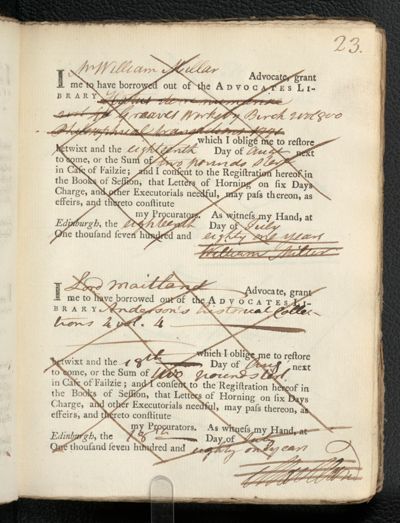 23.
I Wm William Millar Advocate, grant
me to have borrowed out of the ADVOCATES LI-
BRARY
Greaves Works by Birch 2 vol 8vo
which I oblige me to restore
betwixt and the eighteenth Day of next
to come, or the Sum of two pounds ster
in Case of Failzie; and I consent to the Registration hereof in
the Books of Session, that Letters of Horning on six Days
Charge, and other Executorials needful, may pass thereon, as
effeirs, and thereto constitute
my Procurators. As witness my Hand, at
Edinburgh, the eighteenth Day of July
One thousand seven hundred and eighty one years
William Miller
I Lord Maitland Advocate, grant
me to have borrowed out of the ADVOCATES LI-
BRARY Anderson's historical Collec-
tions 4 vol. 4
which I oblige me to restore
betwixt and the 18th Day of Augt next
to come, or the Sum of two pounds ster
in Case of Failzie; and I consent to the Registration hereof in
the Books of Session, that Letters of Horning on six Days
Charge, and other Executorials needful, may pass thereon, as
effeirs, and thereto constitute
my Procurators. As witness my Hand, at
Edinburgh, the 18th Day of July
One thousand seven hundred and eighty one years